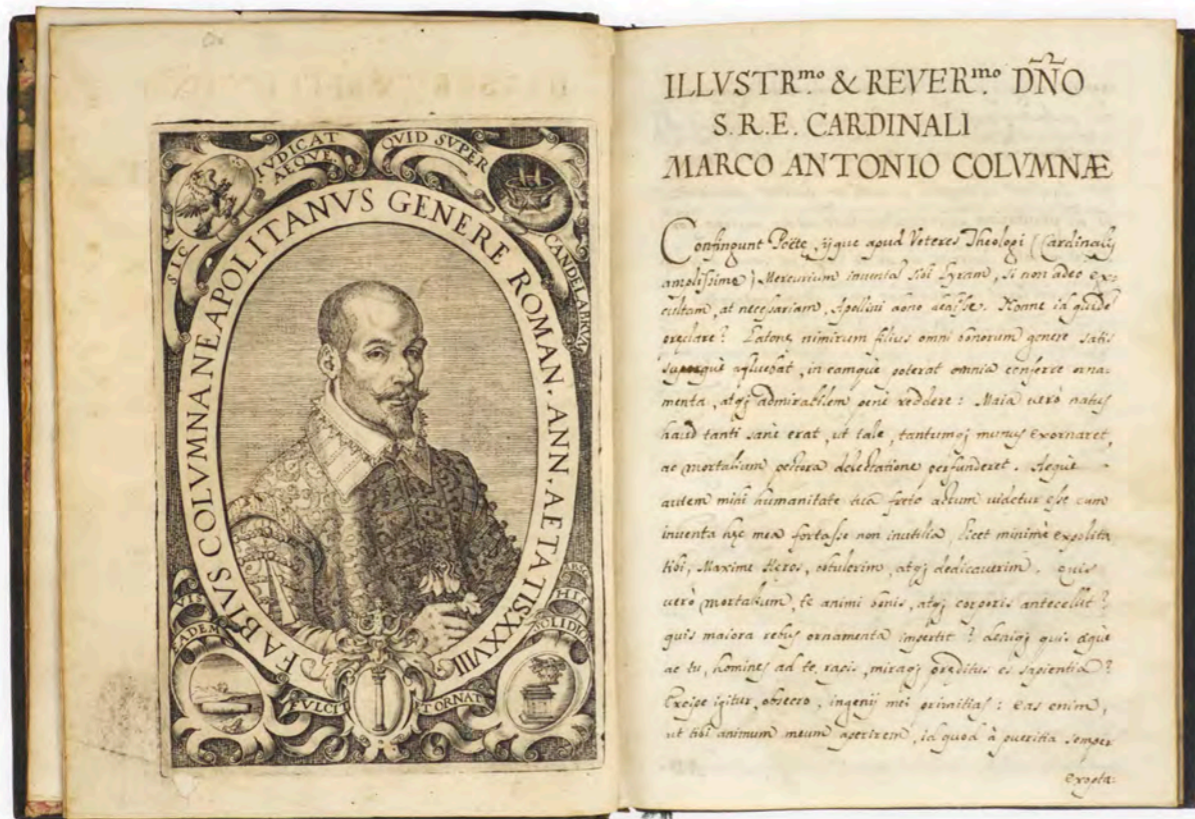 SIC IVDICAT AEQVE
QVID SVPER CANDELABRVM
FABIVS COLVMNA NEAPOLITANVS GENERE ROMAN. ANN. AETATIS. XXVIII
EADEM VIS
HIS SOLIDIOR
FVLCIT ET ORNAT
ILLVSTR.mo & REVER.mo DÑO
S.R.E. CARDINALI
MARCO ANTONIO COLVMNÆ
Confingunt Poëtę, ijque apud Veteres Theologi (Cardinalis
amplissime) Mercurium inventā sibi lyram, si non adeo ex-
cultam, at necessariam, Apollini dono dedisse. Nonne id quidē
pręclare? Latonę nimirum filius omni bonorum genere satis
superquè afluebat, in eamquè poterat omnia conferre orna-
menta, atq; admirabilem penè reddere: Maia verò natus
haud tanti sanè erat, ut tale, tantumq; munus exornaret,
ac mortalium pectora delectatione perfunderet. Aequè
autem mihi humanitate tua freto actum uidetur esse cum
inventa hęc mea fortasse non inutilia, licet minimè expolita
tibi, Maxime Heros, obtulerim, atq; dedicauerim. quis
uerò mortalium, te animi bonis, atq; corporis antecellit?
quis maiora rebus ornamenta impertit? deniq; quis ęquè
ac tu, homines ad te, rapis, miraq; pręditus es sapientia?
Excipe igitur, obsecro, ingenij mei primitias: eas enim,
ut tibi animum meum aperirem, id quod à pueritia semper
exopta: